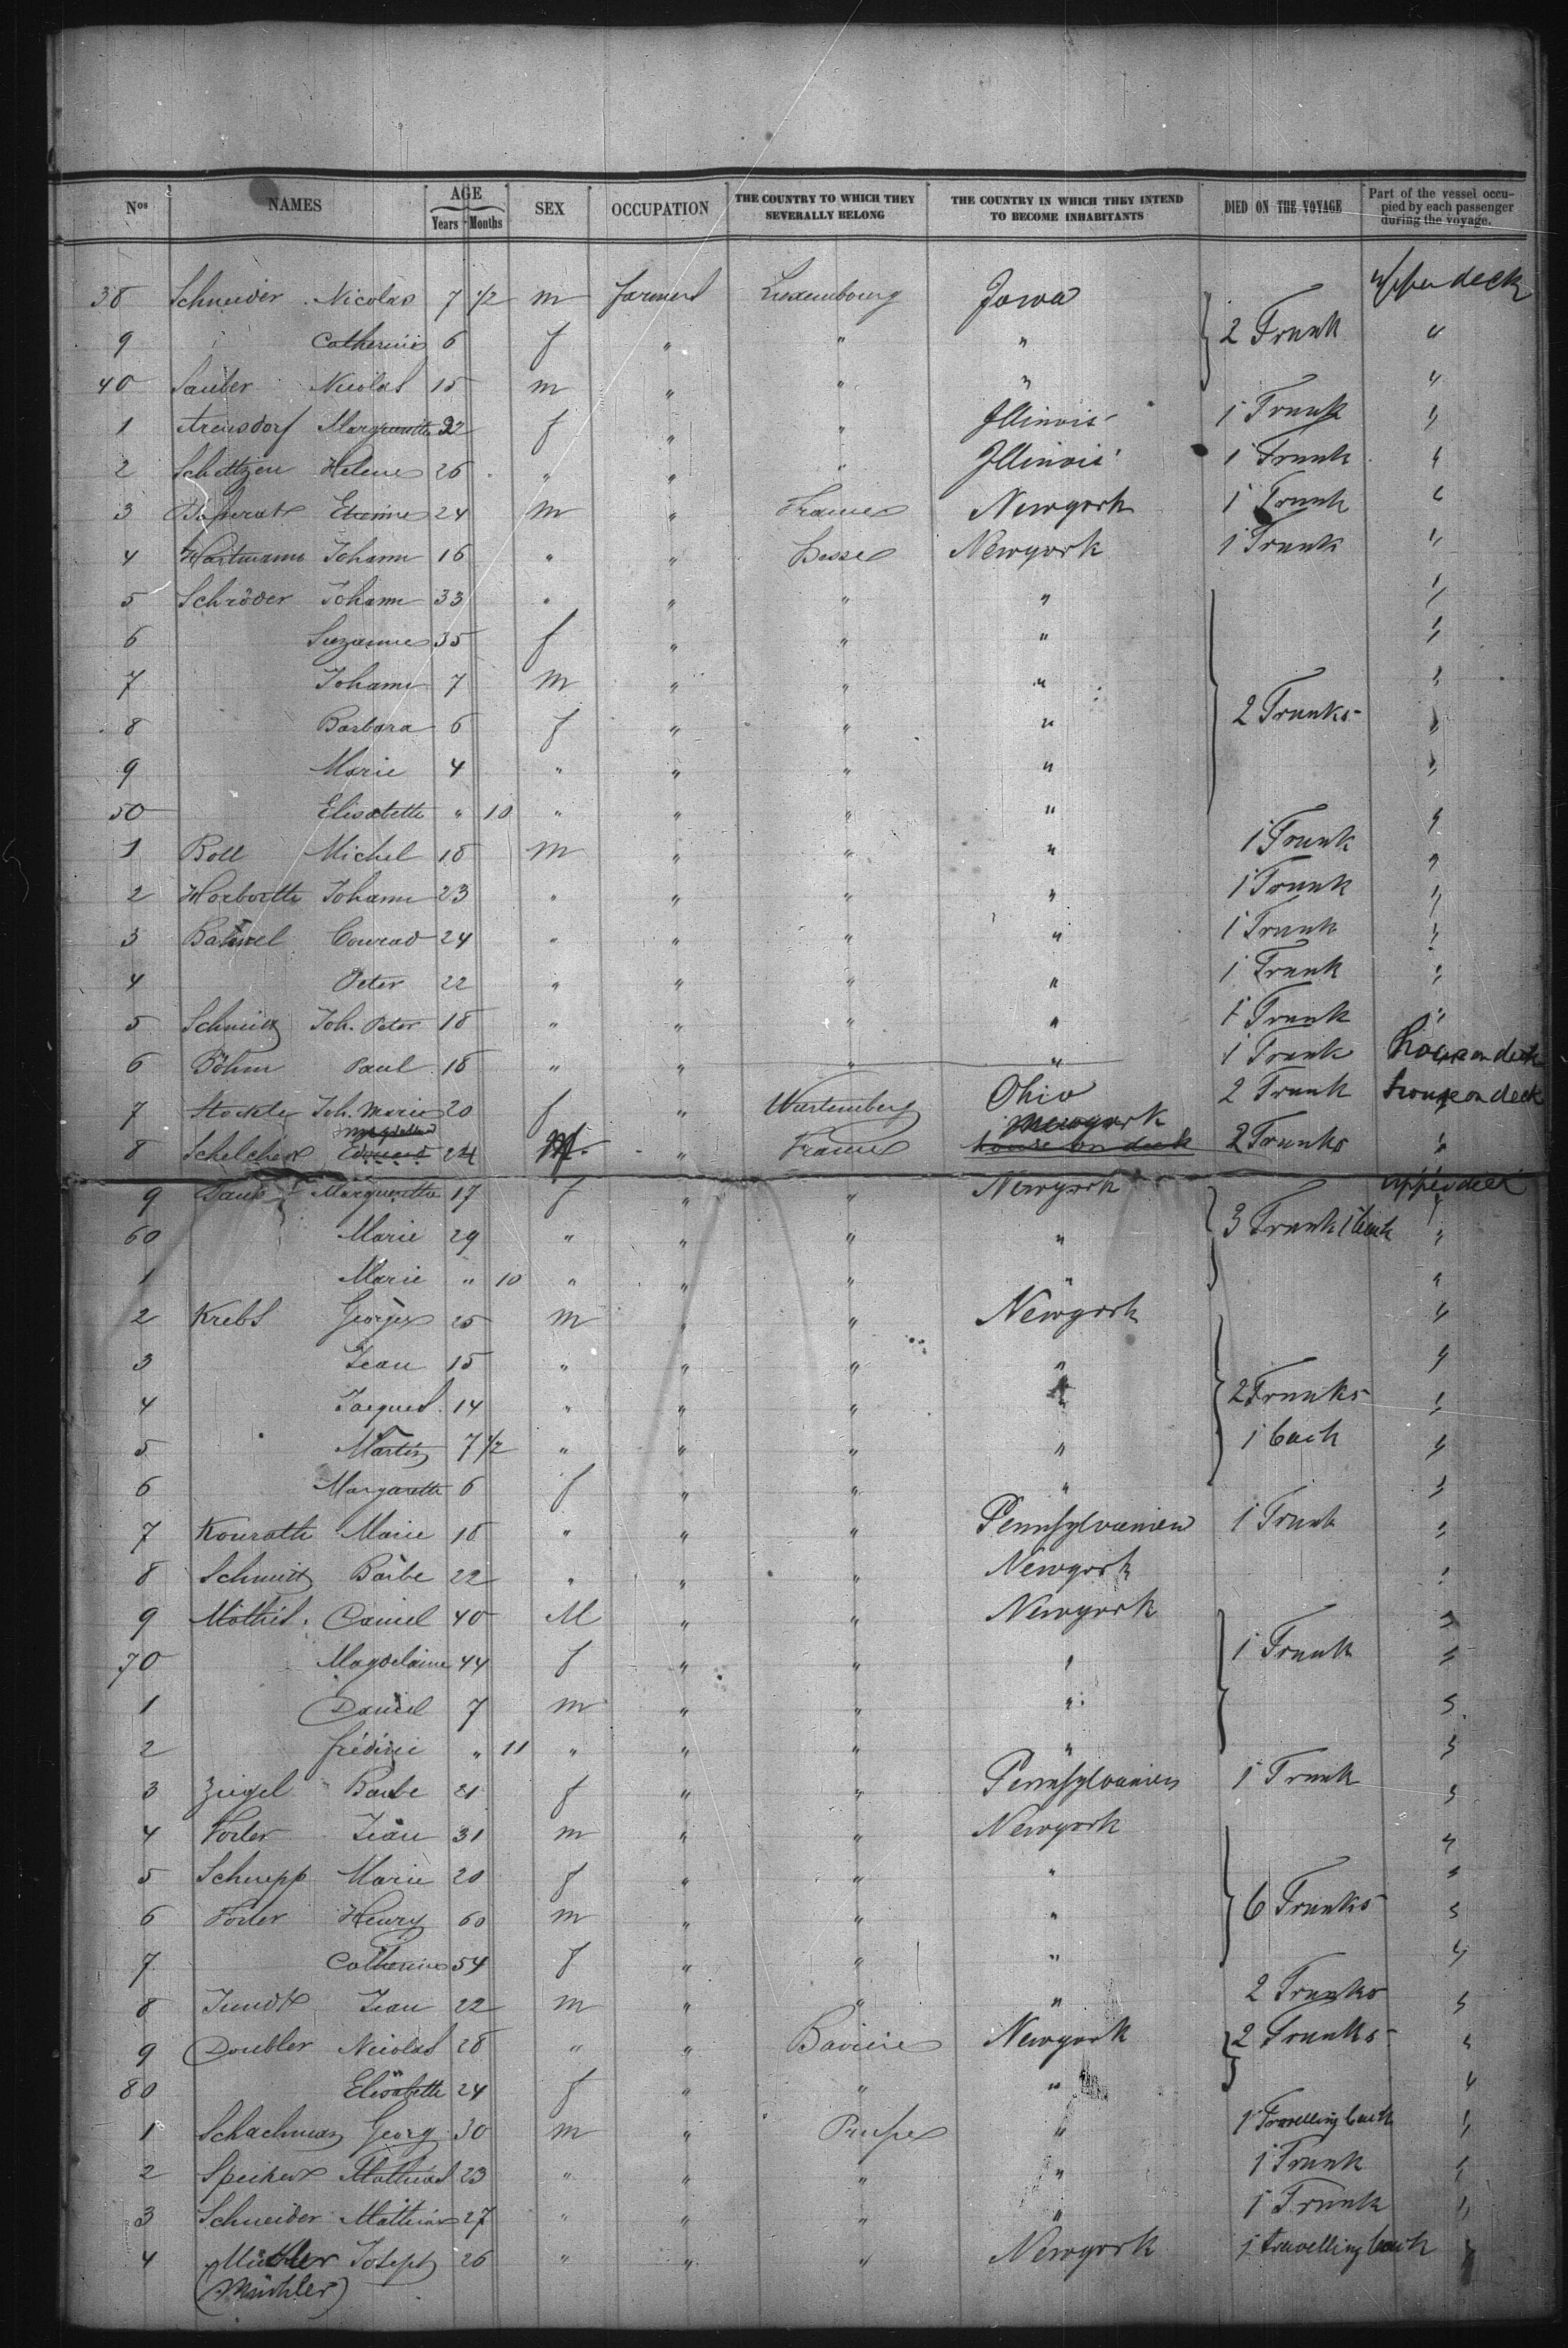 Nos NAMES AGE Years Months SEX OCCUPATION THE COUNTRY TO WHICH THEY SEVERALLY BELONG THE COUNTRY IN WHICH THEY INTEND TO BECOME INHABITANTS DIED ON THE VOYAGE Part of the vessel occupied by each passenger during the voyage.
38 Schneider Nicolas 7 1/2 m farmers Luxembourg Jowa upper deck
9 Catherine 6 f " " " 2 Trunk "
40 Sauber Nicolas 15 m " " " "
1 Arensdorf Marguerite 22 f " " Jllinois 1 Trunk "
2 Helene 26 " " " Jllinois 1 Trunk "
3 Etienne 24 m " France Newyork 1 Trunk "
4 Hartmann Johann 16 " " Hesse Newyork 1 Trunk "
5 Schröder Johann 33 " " " " "
6 Suzanne 35 f " " " "
7 Johann 7 m " " " "
8 Barbara 6 f " " " 2 Trunks "
9 Marie 4 " " " " "
50 Elisabette " 10 " " " " "
1 Boll Michel 18 m " " " 1 Trunk "
2 Johann 23 " " " " 1 Trunk "
3 Conrad 24 " " " " 1 Trunk "
4 Peter 22 " " " " 1 Trunk "
5 Schmitz Joh. Peter 18 " " " " 1 Trunk "
6 Böhm Paul 18 " " " " 1 Trunk house on deck
7 Joh. Marie 20 f " Wurtemberg Ohio 2 Trunk house on deck
8 24 M " France Newyork house on deck 2 Trunks "
9 Marguerette 17 f " " Newyork upper deck
60 Marie 29 " " " " 3 Trunk 1 back "
1 Marie " 10 " " " " "
2 Krebs Georges 25 m " " Newyork "
3 Jean 15 " " " " "
4 Jacques 14 " " " " 2 Trunks "
5 Martin 7 1/2 " " " " 1 back "
6 Margarette 6 f " " " "
7 Konrath Marie 18 " " " Pennsylvanien 1 Trunk "
8 Schmitt Barbe 22 " " " Newyork "
9 Mathis Daniel 40 M " " Newyork "
70 Magdelaine 44 f " " " 1 Trunk "
1 Daniel 7 m " " " "
2 fréderic " 11 " " " " "
3 Ziegel Barbe 21 f " " Pennsylvanien 1 Trunk "
4 Jean 31 m " " Newyork "
5 Schnepp Marie 20 f " " " "
6 Henry 60 m " " " 6 Trunks "
7 Catherine 54 f " " " "
8 Jundt Jean 22 m " " " 2 Trunks "
9 Doubler Nicolas 28 " " Baviere Newyork 2 Trunks "
80 Elisabette 24 f " " " "
1 Georg 30 m " Prusse " 1 Travelling back "
2 Mathias 23 " " " " 1 Trunk "
3 Schneider Mathias 27 " " " " 1 Trunk "
4 Joseph 26 " " " Newyork 1 travelling back "
(Müchler)